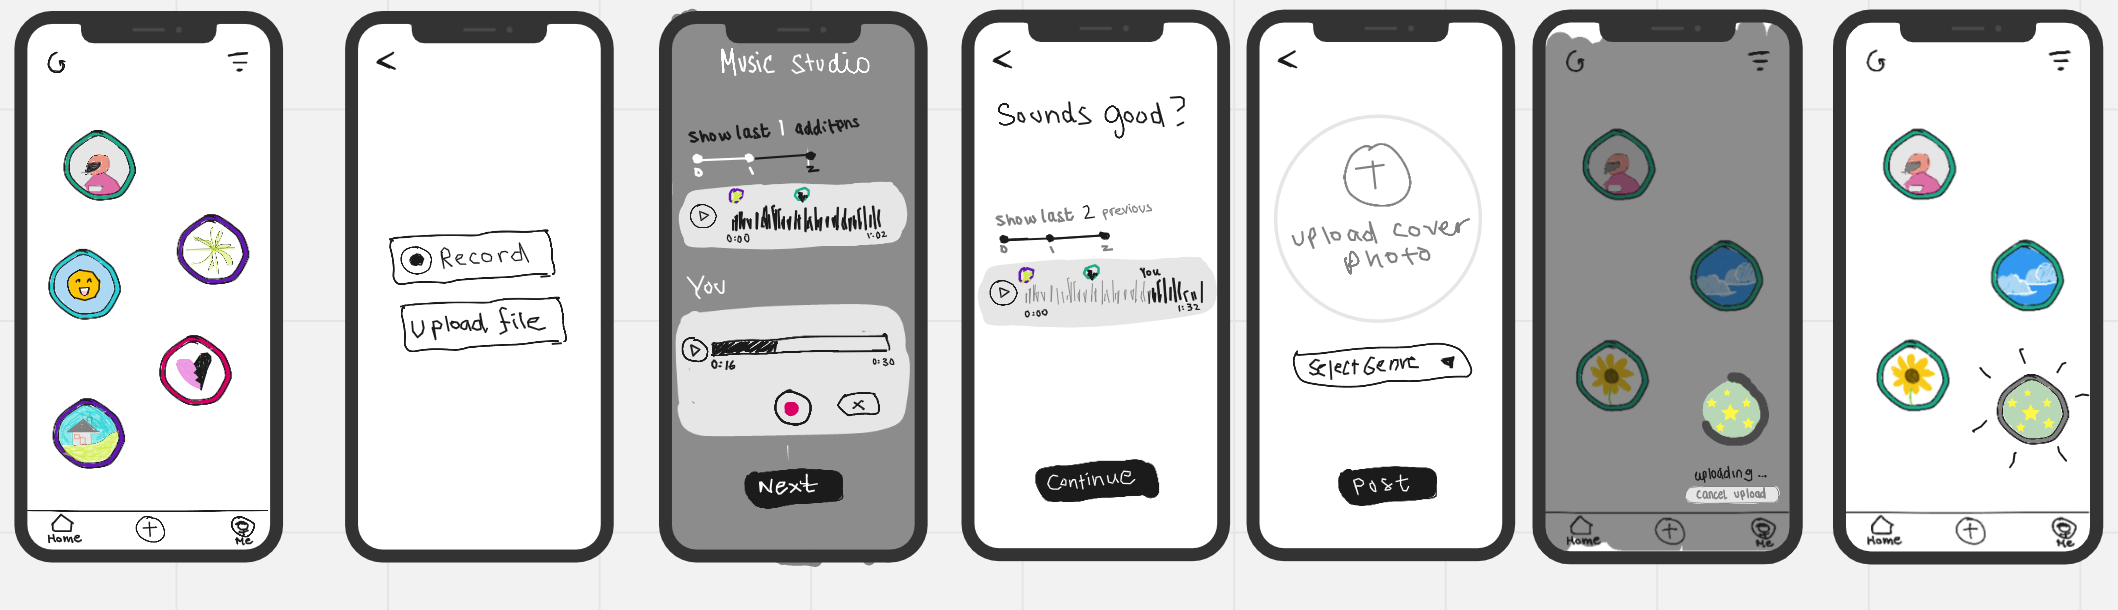 Home
Me
Record
Upload file
Music Studio
Show last 1 additons
0 1 2
0:00 1:02
You
0:16 0:30
Next
Sounds good?
Show last 2 previous
0 1 2
You
0:00 1:32
Continue
upload cover
photo
Select Genre
Post
uploading ...
cancel upload
Home
Me
Home
Me